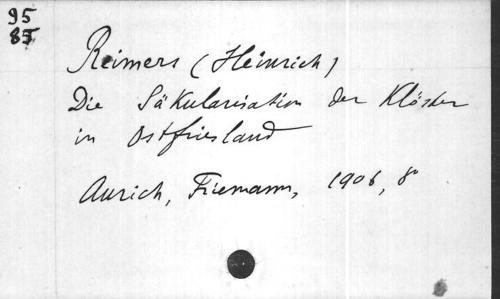 95
85
Reimers (Heinrich)
Die Säkularisation der Klöster
in Ostfriesland
Aurich, Friemann, 1906, 8°